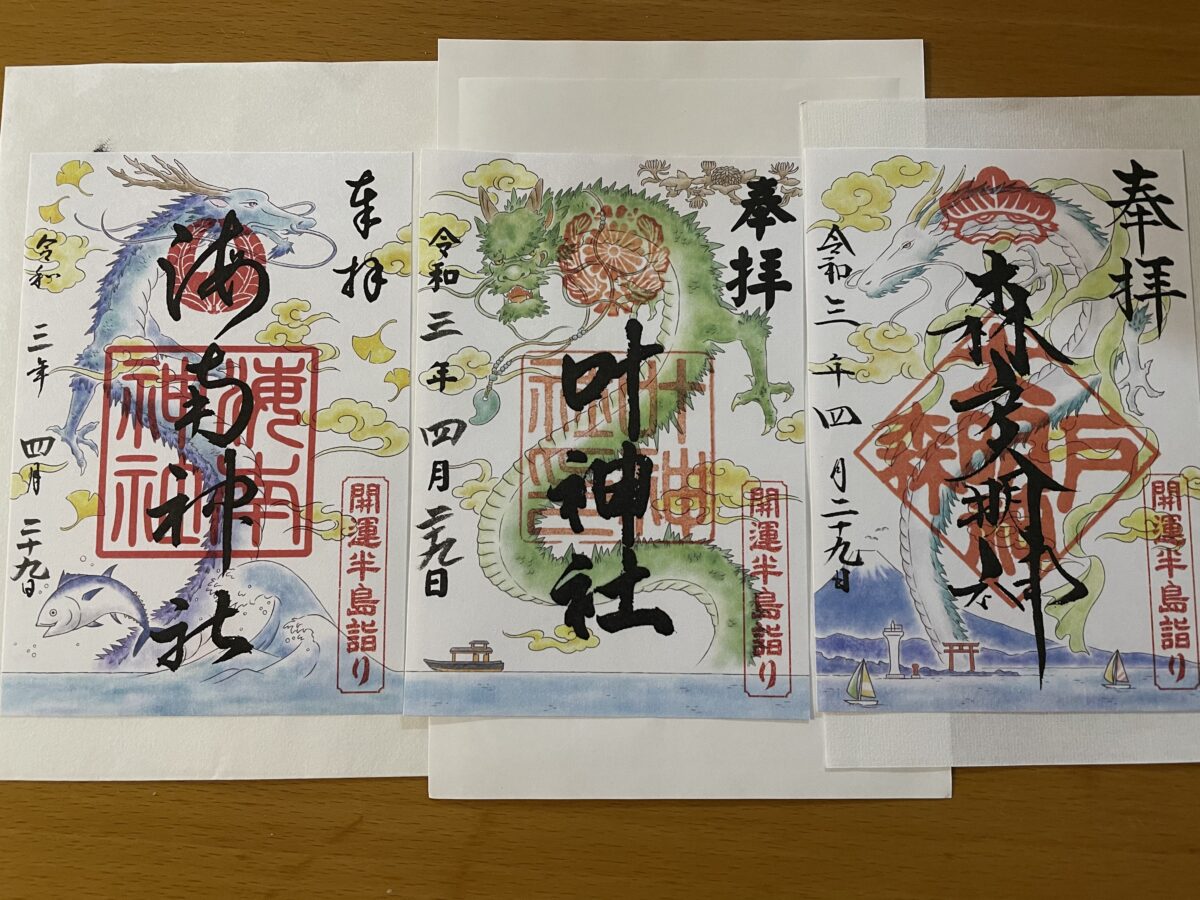 奉拝
海南神社
海南神社
開運半島詣り
令和三年四月二十九日
奉拝
叶神社
開運半島詣り
令和三年四月二九日
奉拝
森戸大明神
森戸大明神
開運半島詣り
令和三年四月二十九日